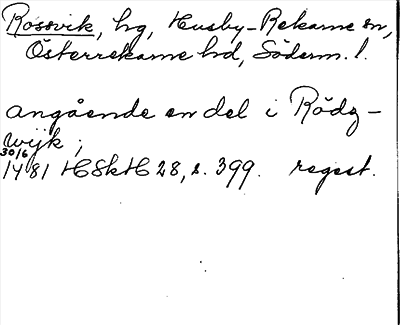 Rossvik, hg, Husby-Rekarne sn,
Österrekarne hd, Söderm. l.
angående en del i Rödz-
wijk;
30/6
1481 HSkH 28, s. 399. regest.